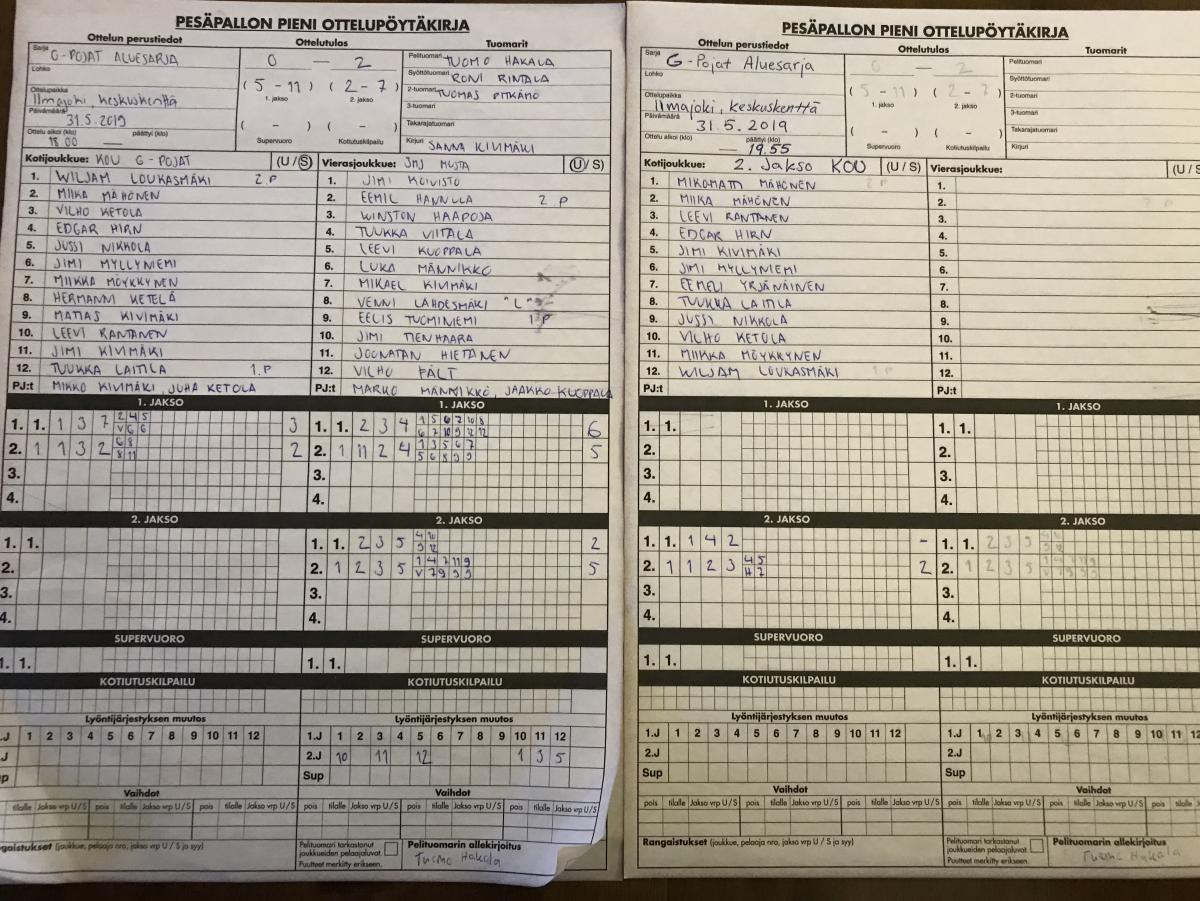 PESÄPALLON PIENI OTTELUPÖYTÄKIRJA
Ottelun perustiedot Ottelutulos Tuomarit
Sarja G-POJAT ALUESARJA 0 — 2 Pelituomari TUOMO HAKALA
Lohko Syöttötuomari RONI RINTALA
Ottelupaikka Ilmajoki, keskuskenttä (5 - 11) (2 - 7) 2-tuomari TUOMAS PITKÄMÖ
1. jakso 2. jakso 3-tuomari
Päivämäärä 31.5.2019 ( - ) ( - ) Takarajatuomari
Ottelu alkoi (klo) 18.00 — päättyi (klo) Supervuoro Kotiutuskilpailu Kirjuri SANNA KIVIMÄKI
Kotijoukkue: KOU G-POJAT (U / S) Vierasjoukkue: JMJ MUSTA (U / S)
1. WILJAM LOUKASMÄKI 2.P 1. JIMI KOIVISTO
2. MIIKA MÄHÖNEN 2. EEMIL HANNULA 2 P
3. VILHO KETOLA 3. WINSTON HAAPOJA
4. EDGAR HIRN 4. TUUKKA VIITALA
5. JUSSI NIKKOLA 5. LEEVI KUOPPALA
6. JIMI MYLLYNIEMI 6. LUKA MÄNNIKKÖ
7. MIIKKA MÖYKKYNEN 7. MIKAEL KIVIMÄKI
8. HERMANNI KETELÄ 8. VENNI LÄHDESMÄKI "L"
9. MATIAS KIVIMÄKI 9. EELIS TUOMINIEMI 1 P
10. LEEVI RANTANEN 10. JIMI TIENHAARA
11. JIMI KIVIMÄKI 11. JOONATAN HIETANEN
12. TUUKKA LAITILA 1.P 12. VILHO FÄLT
PJ:t MIKKO KIVIMÄKI, JUHA KETOLA PJ:t MARKO MÄNNIKKÖ, JAAKKO KUOPPALA
1. JAKSO 1. JAKSO
1. 1. 1 3 7 2 4 5 3 1. 1. 2 3 4 1 5 6 7 10 8 6
V 6 6 6 7 10 9 12 12
2. 1 1 3 2 6 8 2 2. 1 11 2 4 1 3 5 6 7 5
8 11 5 6 8 9 9
3. 3.
4. 4.
2. JAKSO 2. JAKSO
1. 1. 1. 1. 2 3 5 4 10 2
9 12
2. 2. 1 2 3 5 1 4 7 11 9 5
V 7 9 9 9
3. 3.
4. 4.
SUPERVUORO SUPERVUORO
1. 1. 1. 1.
KOTIUTUSKILPAILU KOTIUTUSKILPAILU
Lyöntijärjestyksen muutos Lyöntijärjestyksen muutos
.J 1 2 3 4 5 6 7 8 9 10 11 12 1.J 1 2 3 4 5 6 7 8 9 10 11 12
J 2.J 10 11 12 1 3 5
p Sup
Vaihdot Vaihdot
tilalle Jakso vrp U/S pois tilalle Jakso vrp U/S pois tilalle Jakso vrp U/S pois tilalle Jakso vrp U/S pois tilalle Jakso vrp U/S
ngaistukset (joukkue, pelaaja nro, jakso vrp U / S ja syy) Pelituomari tarkastanut joukkueiden pelaajaluvat. Pelituomarin allekirjoitus
Puutteet merkitty erikseen. Tuomo Hakala
PESÄPALLON PIENI OTTELUPÖYTÄKIRJA
Ottelun perustiedot Ottelutulos Tuomarit
Sarja G-Pojat Aluesarja 0 — 2 Pelituomari
Lohko Syöttötuomari
Ottelupaikka Ilmajoki, keskuskenttä (5 - 11) (2 - 7) 2-tuomari
1. jakso 2. jakso 3-tuomari
Päivämäärä 31.5.2019 ( - ) ( - ) Takarajatuomari
Ottelu alkoi (klo) — päättyi (klo) 19.55 Supervuoro Kotiutuskilpailu Kirjuri
Kotijoukkue: 2. Jakso KOU (U / S) Vierasjoukkue: (U / S
1. MIKOMATTI MÄHÖNEN 2 P 1.
2. MIIKA MÄHÖNEN 2.
3. LEEVI RANTANEN 3.
4. EDGAR HIRN 4.
5. JIMI KIVIMÄKI 5.
6. JIMI MYLLYNIEMI 6.
7. EEMELI YRJÄNÄINEN 7.
8. TUUKKA LAITILA 8.
9. JUSSI NIKKOLA 9.
10. VILHO KETOLA 10.
11. MIIKKA MÖYKKYNEN 11.
12. WILJAM LOUKASMÄKI 1 P 12.
PJ:t PJ:t
1. JAKSO 1. JAKSO
1. 1. 1. 1.
2. 2.
3. 3.
4. 4.
2. JAKSO 2. JAKSO
1. 1. 1 4 2 - 1. 1. 2 3 5 4 10
9 12
2. 1 1 2 3 4 5 2 2. 1 2 3 5 1 4 7 11 9
H 7 V 7 9 9 9
3. 3.
4. 4.
SUPERVUORO SUPERVUORO
1. 1. 1. 1.
KOTIUTUSKILPAILU KOTIUTUSKILPAILU
Lyöntijärjestyksen muutos Lyöntijärjestyksen muutos
1.J 1 2 3 4 5 6 7 8 9 10 11 12 1.J 1 2 3 4 5 6 7 8 9 10 11 12
2.J 2.J
Sup Sup
Vaihdot Vaihdot
pois tilalle Jakso vrp U/S pois tilalle Jakso vrp U/S pois tilalle Jakso vrp U/S pois tilalle Jakso vrp U/S pois tilalle Jakso vrp
Rangaistukset (joukkue, pelaaja nro, jakso vrp U / S ja syy) Pelituomari tarkastanut joukkueiden pelaajaluvat. Pelituomarin allekirjoitus
Puutteet merkitty erikseen. Tuomo Hakala